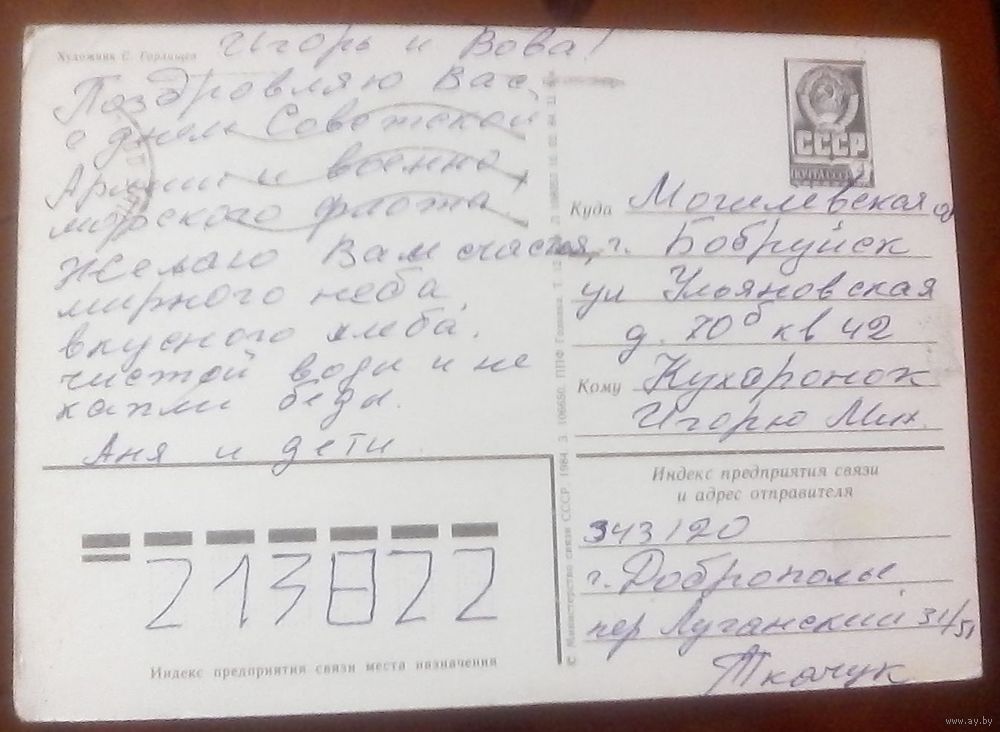 Художник Е. Горлищев
Игорь и Вова!
Поздровляю Вас,
с днем Советской
Армии и военно
морского флота
Желаю Вам счастья,
мирного неба,
вкусного хлеба,
чистой воды и не
капли беды.
Аня и дети
213822
Индекс предприятия связи места назначения
© Министерство связи СССР. 1984. З. 106650. ППФ Гознака.
СССР
ПОЧТА СССР
Куда Могилевская о
г. Бобруйск
ул Ульяновская
д. 70б кв 42
Кому Кухаронок
Игорю Мих.
Индекс предприятия связи
и адрес отправителя
343120
г. Доброполье
пер Луганский 31/51
Ткачук
www.ay.by